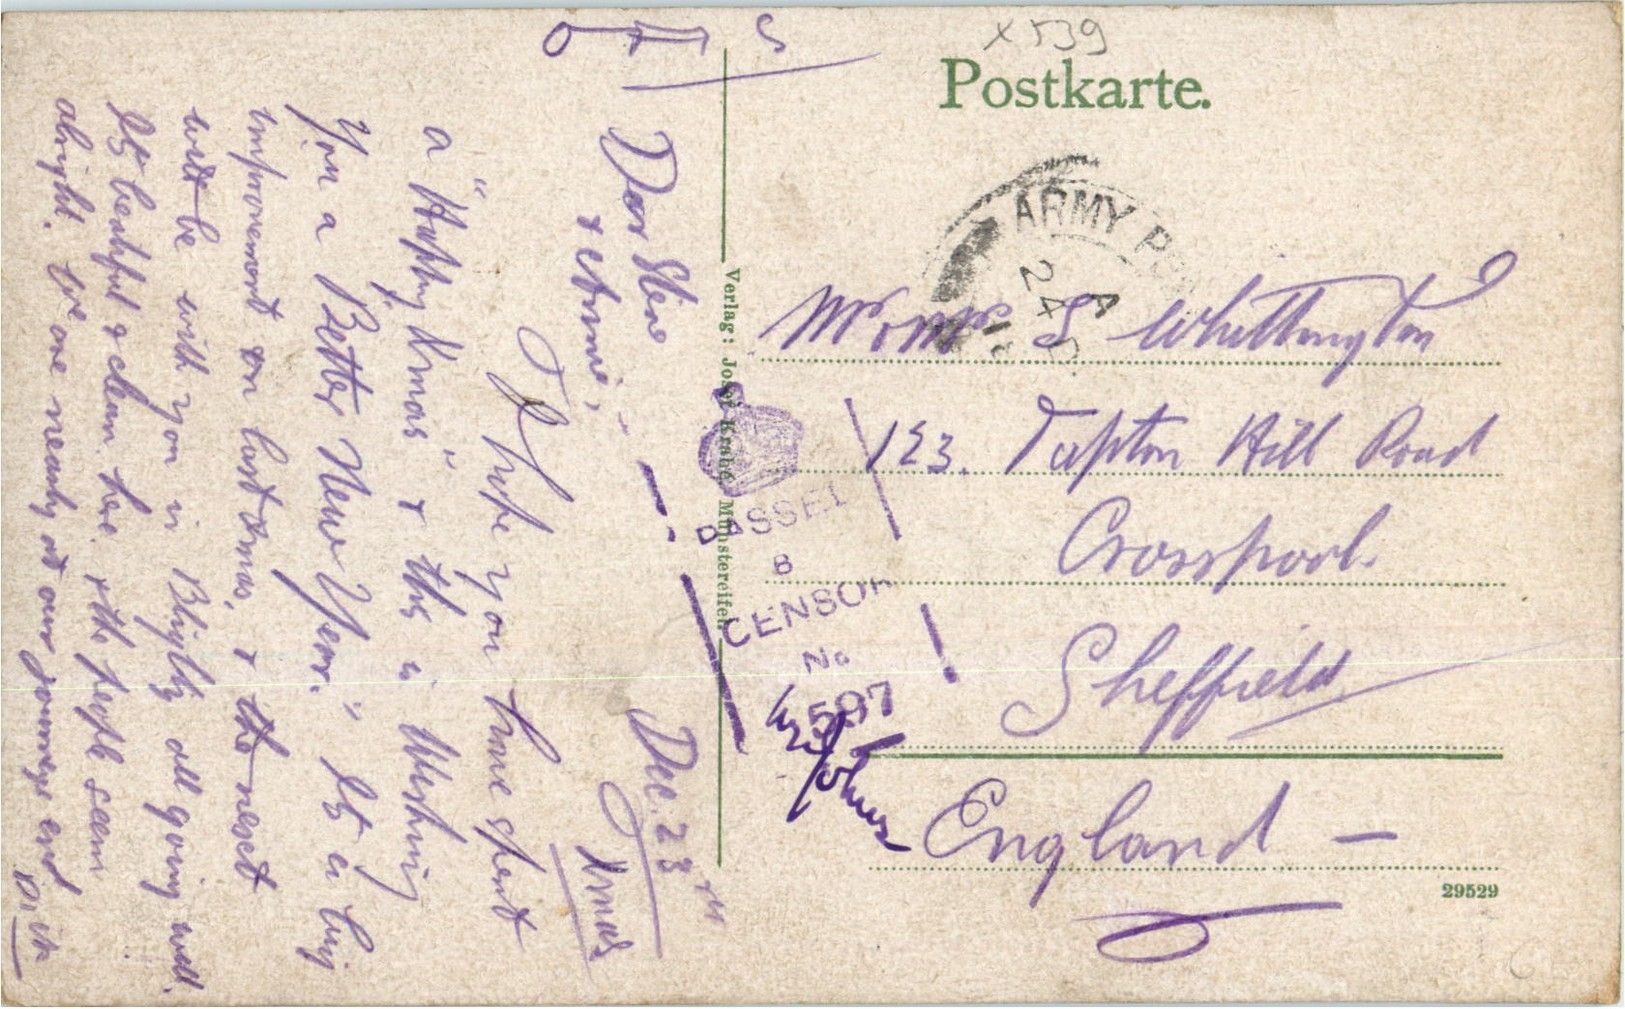 OAS
x 539
Postkarte.
ARMY
A
24
Verlag: Josef Krebs, Münstereifel.
Mr & Mrs S Whittington
123. Tapton Hill Road
Crosspool.
Sheffield
England —
29529
PASSED
B
CENSOR
No
597
Dec. 23rd
Xmas
Dear Steve
& Annie,
I hope you have spent
a "Happy Xmas" & this is Wishing
You a Better New Year." Its a big
improvement on last Xmas, & the next
will be with you in Blighty all going well.
Its beautiful & clean here, & the people seem
alright. We are nearly at our journeys end